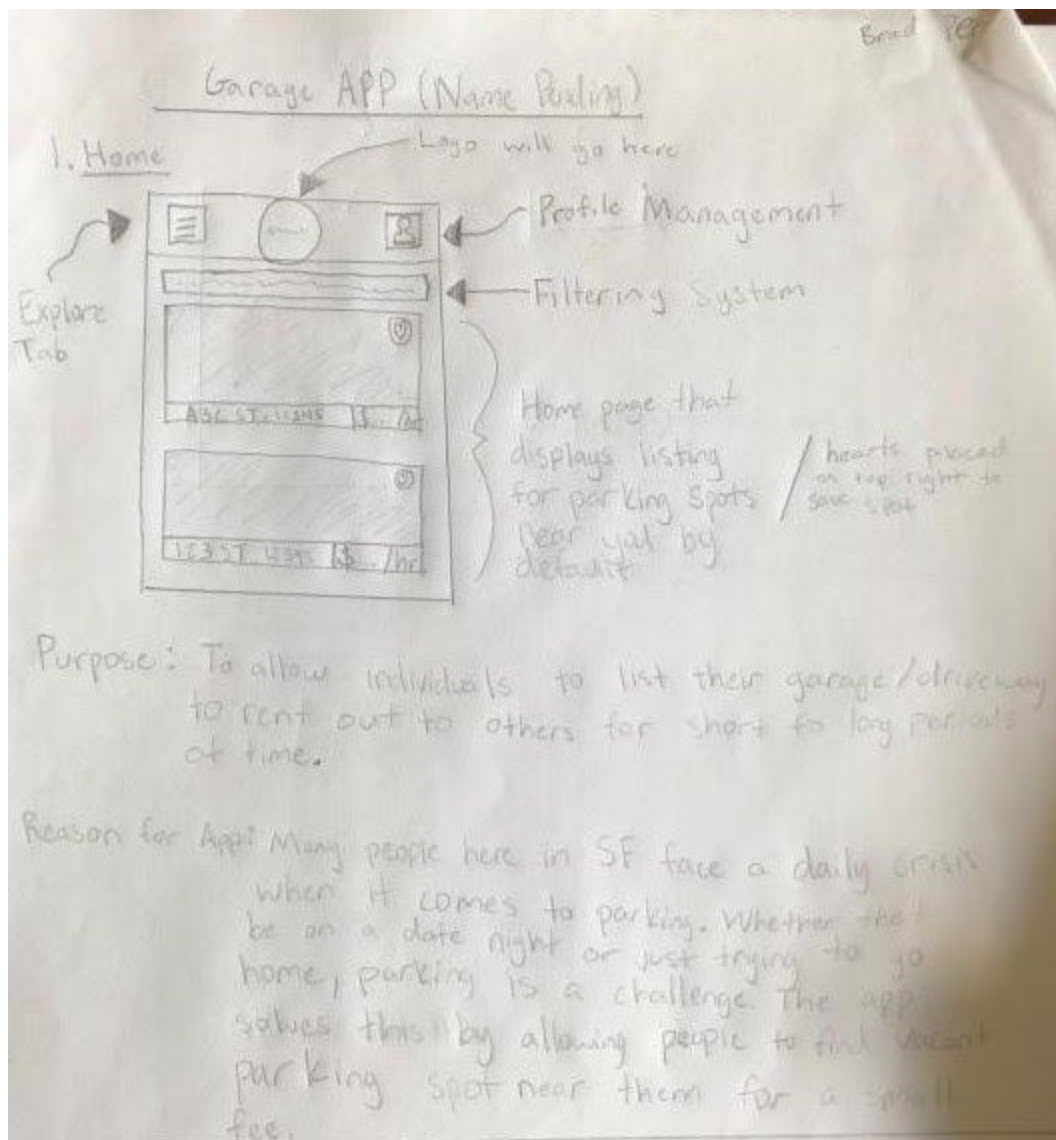 Brad
Garage APP (Name Pending)
1. Home
Logo will go here
Profile Management
Explore
Tab
Filtering System
ABC ST
$ /hr
123 ST
$ /hr
Home page that
displays listing
for parking spots
near you by
default
/ hearts placed
on top right to
save spot
Purpose: To allow individuals to list their garage/driveway
to rent out to others for short to long periods
of time.
Reason for App: Many people here in SF face a daily crisis
when it comes to parking. Whether that
be on a date night or just trying to go
home, parking is a challenge. The app
solves this by allowing people to find vacant
parking spot near them for a small
fee.